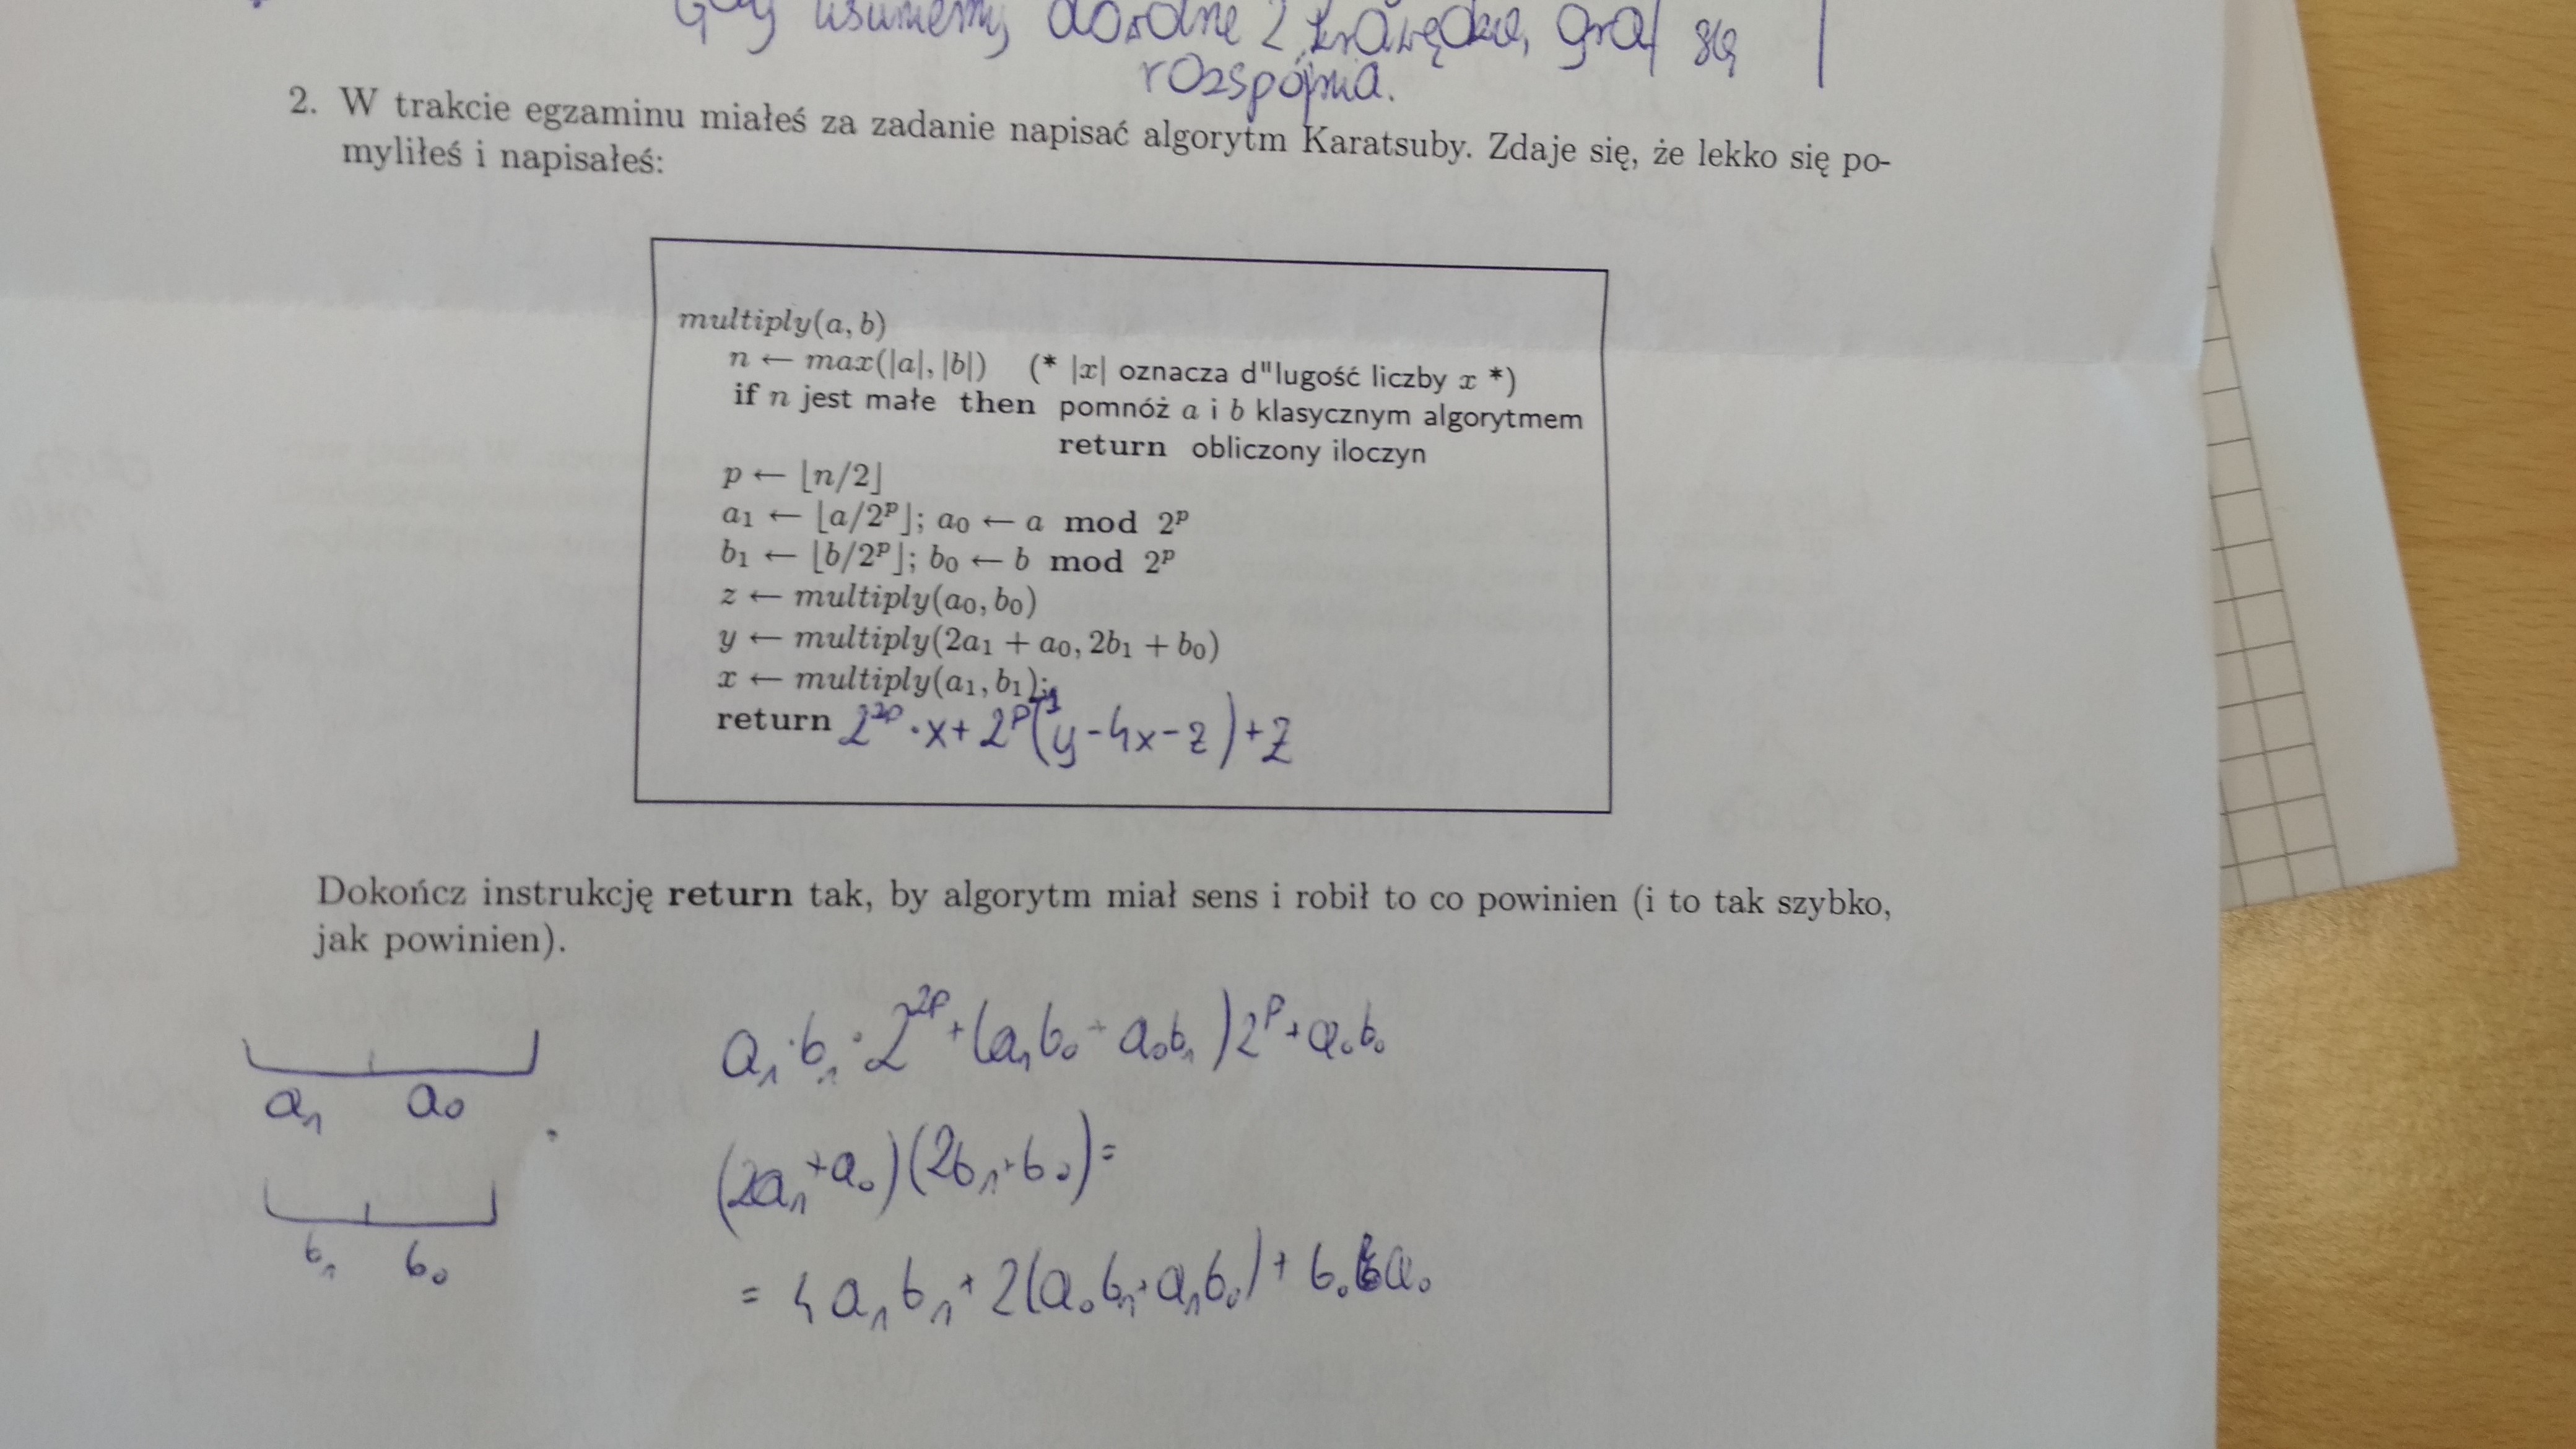 Gdy usuniemy dowolne 2 krawędzie, graf się
rozspójnia.
2. W trakcie egzaminu miałeś za zadanie napisać algorytm Karatsuby. Zdaje się, że lekko się po-
myliłeś i napisałeś:
multiply(a, b)
n ← max(|a|, |b|) (* |x| oznacza d"lugość liczby x *)
if n jest małe then pomnóż a i b klasycznym algorytmem
return obliczony iloczyn
p ← ⌊n/2⌋
a₁ ← ⌊a/2ᵖ⌋; a₀ ← a mod 2ᵖ
b₁ ← ⌊b/2ᵖ⌋; b₀ ← b mod 2ᵖ
z ← multiply(a₀, b₀)
y ← multiply(2a₁ + a₀, 2b₁ + b₀)
x ← multiply(a₁, b₁);
return 2²ᵖ · x + 2ᵖ⁻¹(y - 4x - z) + z
Dokończ instrukcję return tak, by algorytm miał sens i robił to co powinien (i to tak szybko,
jak powinien).
a₁ · b₁ · 2²ᵖ + (a₁b₀ + a₀b₁)2ᵖ + a₀b₀
a₁ a₀
(2a₁ + a₀)(2b₁ + b₀) =
b₁ b₀
= 4a₁b₁ + 2(a₀b₁ + a₁b₀) + b₀a₀